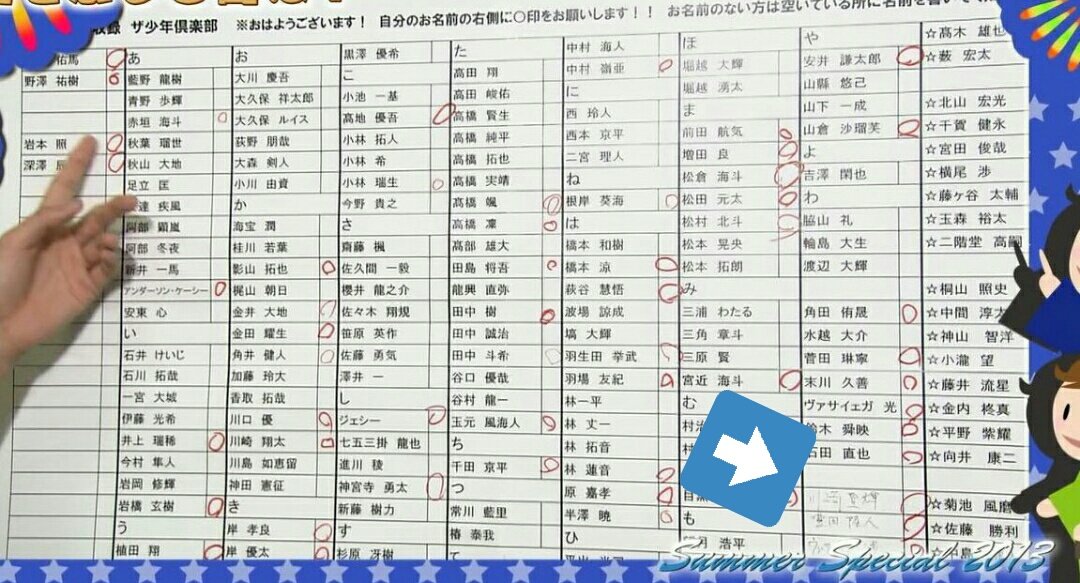 収録 ザ少年倶楽部 ※おはようございます! 自分のお名前の右側に○印をお願いします!! お名前のない方は空いている所に名前を書いて
佑馬
野澤 祐樹
岩本 照
深澤
あ
藍野 龍樹
青野 歩輝
赤垣 海斗
秋葉 瑠世
秋山 大地
足立 匡
達 疾風
阿部 顕嵐
阿部 冬夜
新井 一馬
アンダーソン・ケーシー
安東 心
い
石井 けいじ
石川 拓哉
一宮 大城
伊藤 光希
井上 瑞稀
今村 隼人
岩岡 修輝
岩橋 玄樹
う
植田 翔
お
大川 慶吾
大久保 祥太郎
大久保 ルイス
荻野 朋哉
大森 剣人
小川 由資
か
海宝 潤
桂川 若葉
影山 拓也
梶山 朝日
金井 大地
金田 耀生
角井 健人
加藤 玲大
香取 拓哉
川口 優
川崎 翔太
川島 如恵留
神田 憲征
き
岸 孝良
岸 優太
黒澤 優希
こ
小池 一基
髙地 優吾
小林 拓人
小林 希
小林 瑞生
今野 貴之
さ
齋藤 楓
佐久間 一毅
櫻井 龍之介
佐々木 翔規
笹原 英作
佐藤 勇気
澤井 一
し
ジェシー
七五三掛 龍也
進川 稜
神宮寺 勇太
新藤 樹力
す
杉原 冴樹
た
高田 翔
高田 峻佑
高橋 賢生
高橋 純平
高橋 拓也
高橋 実靖
高橋 颯
高橋 凜
髙部 雄大
田島 将吾
龍興 直弥
田中 樹
田中 誠治
田中 斗希
谷口 優哉
谷村 龍一
玉元 風海人
ち
千田 京平
つ
常川 藍里
椿 泰我
て
中村 海人
中村 嶺亜
に
西 玲人
西本 京平
二宮 理人
ね
根岸 葵海
は
橋本 和樹
橋本 涼
萩谷 慧悟
波場 諒成
塙 大輝
羽生田 挙武
羽場 友紀
林 一平
林 丈一
林 拓音
林 蓮音
原 嘉孝
半澤 暁
ひ
ほ
堀越 大輝
堀越 湧太
ま
前田 航気
増田 良
松倉 海斗
松田 元太
松村 北斗
松本 晃央
松本 拓朗
み
三浦 わたる
三角 章斗
三原 賢
宮近 海斗
む
も
浩平
や
安井 謙太郎
山縣 悠己
山下 一成
山倉 沙瑠芙
よ
吉澤 閑也
わ
脇山 礼
輪島 大生
渡辺 大輝
角田 侑晟
水越 大介
菅田 琳寧
末川 久善
ヴァサイェガ 光
鈴木 舜映
石田 直也
☆髙木 雄也
☆薮 宏太
☆北山 宏光
☆千賀 健永
☆宮田 俊哉
☆横尾 渉
☆藤ヶ谷 太輔
☆玉森 裕太
☆二階堂 高嗣
☆桐山 照史
☆中間 淳太
☆神山 智洋
☆小瀧 望
☆藤井 流星
☆金内 柊真
☆平野 紫耀
☆向井 康二
☆菊池 風磨
☆佐藤 勝利
Summer Special 2013